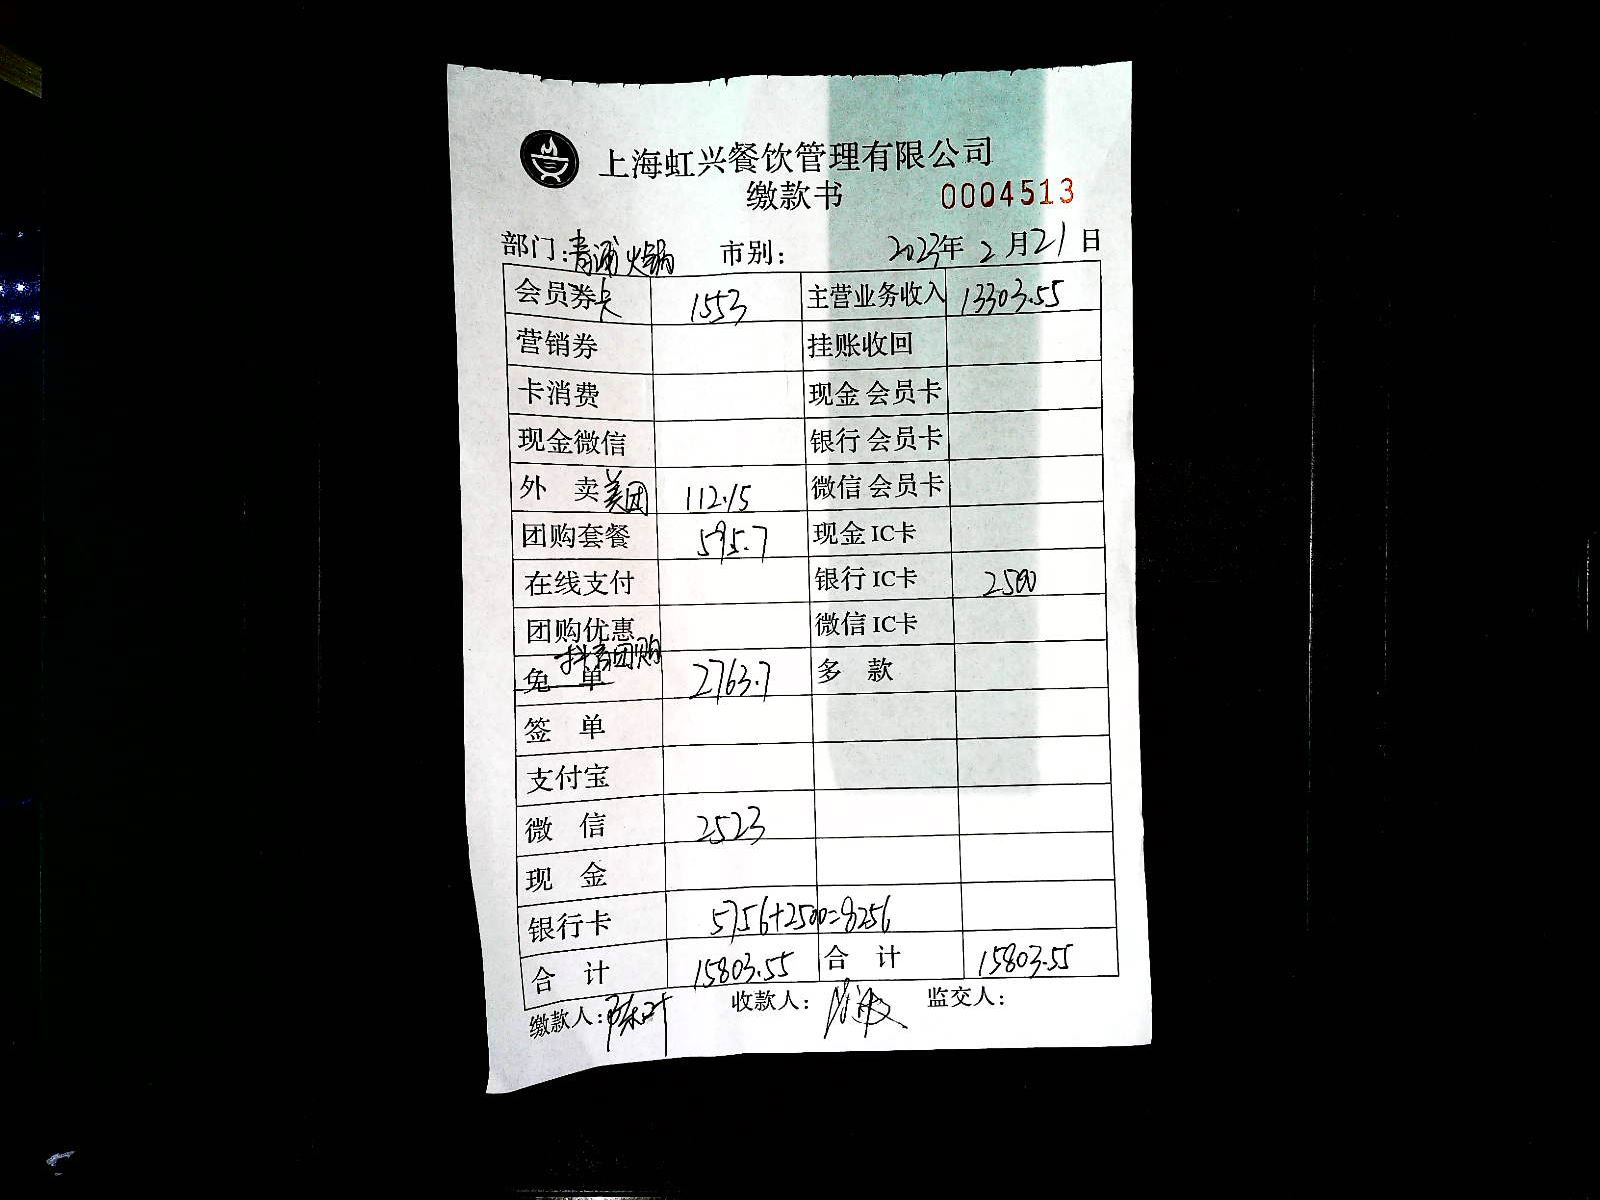 上海虹兴餐饮管理有限公司
缴款书 0004513
部门:青浦火锅 市别: 2023年2月21日
会员券卡 1553 主营业务收入 13303.55
营销券 挂账收回
卡消费 现金 会员卡
现金微信 银行 会员卡
外 卖 美团 112.15 微信 会员卡
团购套餐 595.7 现金 IC卡
在线支付 银行 IC卡 2500
团购优惠 微信 IC卡
抖音团购
免 单 2763.7 多 款
签 单
支付宝
微 信 2523
现 金
银行卡 5756+2500=8256
合 计 15803.55 合 计 15803.55
缴款人: 收款人: 监交人: